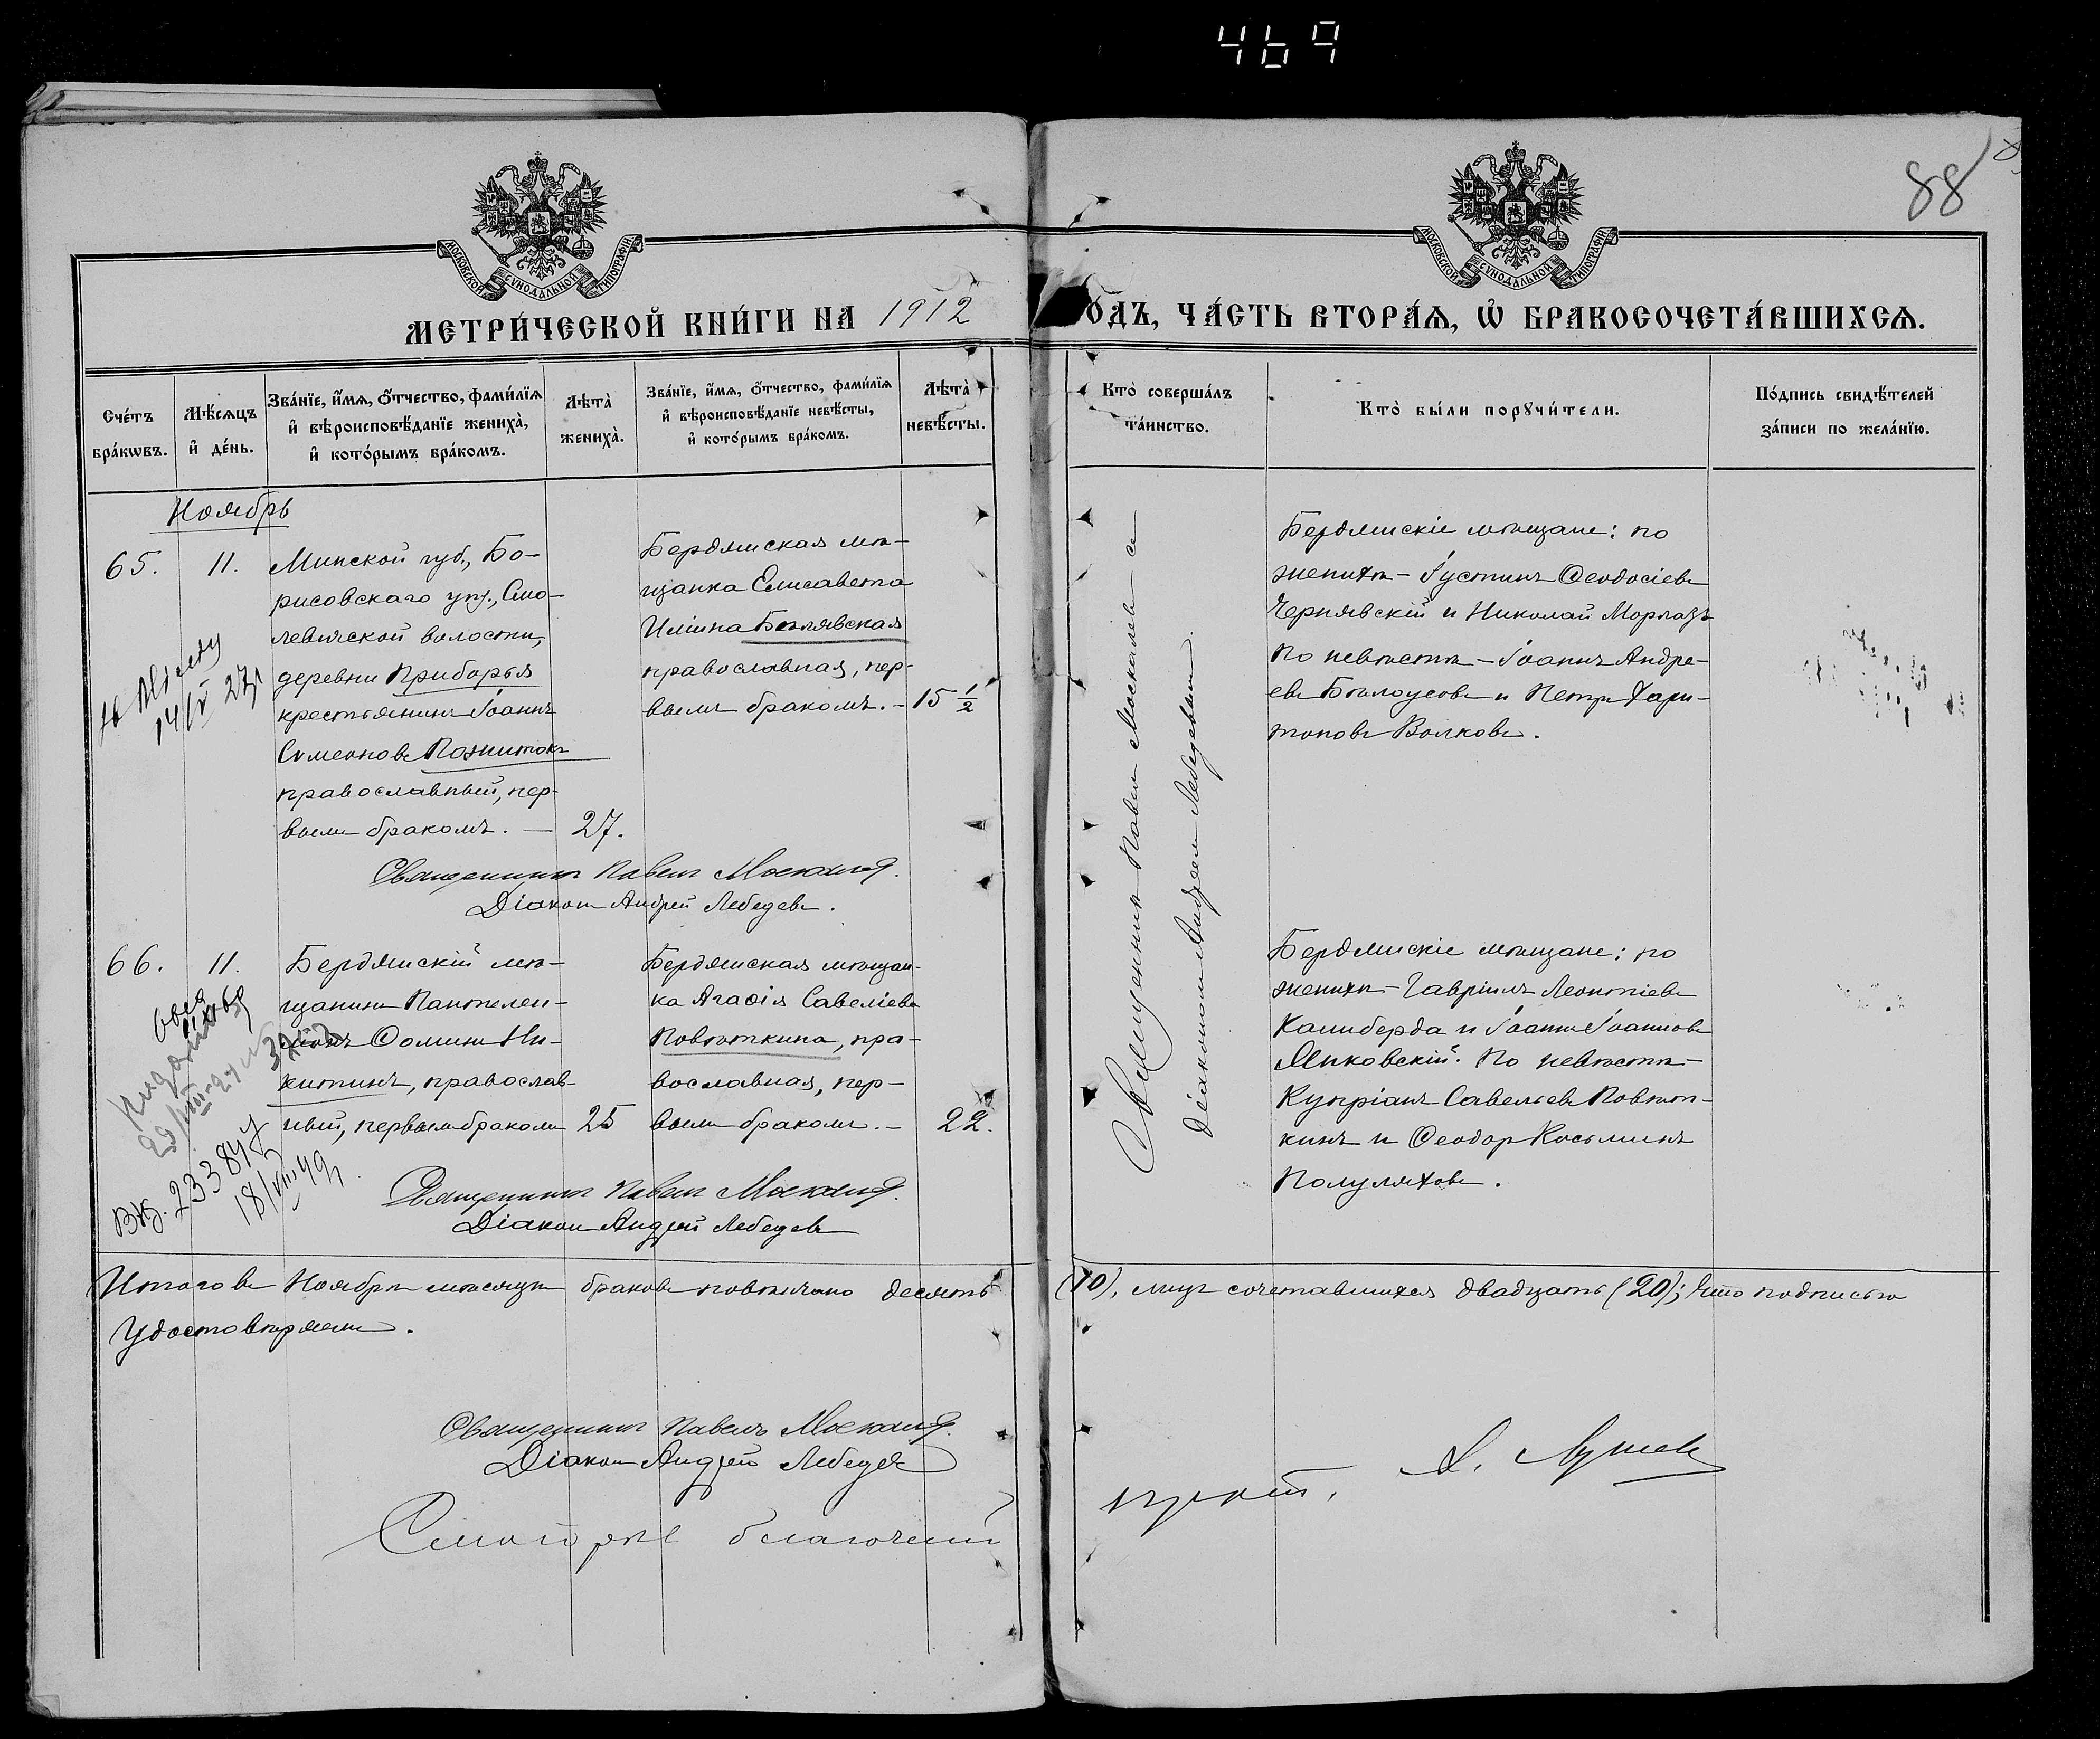 469
88
МОСКОВСКОЙ СѴНОДАЛЬНОЙ ТИПОГРАФІИ
МОСКОВСКОЙ СѴНОДАЛЬНОЙ ТИПОГРАФІИ
МЕТРИ́ЧЕСКОЙ КНИ́ГИ НА 1912 ОДЪ, ЧА́СТЬ ВТОРА́Ѧ, Ѡ҆ БРАКОСОЧЕТА́ВШИХСѦ.
Сче́тъ бра́кѡвъ.
Мѣ́сѧцъ и҆ де́нь.
Зва́нїе, и҆́мѧ, ѻ҆́тчество, фами́лїѧ и҆ вѣроисповѣ́данїе жениха̀, и҆ кото́рымъ бра́комъ.
Лѣта̀ жениха̀.
Зва́нїе, и҆́мѧ, ѻ҆́тчество, фами́лїѧ и҆ вѣроисповѣ́данїе невѣ́сты, и҆ кото́рымъ бра́комъ.
Лѣта̀ невѣ́сты.
Кто̀ соверша́лъ та́инство.
Кто̀ бы́ли порꙋчи́тели.
По́дпись свидѣ́телей за́писи по жела́нїю.
Ноябрь
65. 11.
Минской губ., Бо-
рисовскаго уѣз., Смо-
левичской волости,
деревни Приборья
крестьянинъ Іоаннъ
Симеоновъ Пожитокъ
православный, пер-
вымъ бракомъ. — 27.
Бердянская мѣ-
щанка Елисавета
Иліина Бѣлявская
православная, пер-
вымъ бракомъ. — 15 1/2
Священникъ Павелъ Москалевъ съ
діакономъ Андреемъ Лебедевымъ.
Бердянскіе мѣщане: по
женихѣ — Іустинъ Ѳеодосіевъ
Чернявскій и Николай Моргазъ
По невѣстѣ — Іоаннъ Андре-
евъ Бѣлоусовъ и Петръ Хари-
тоновъ Волковъ.
14/V 27г
Священникъ Павелъ Москалев.
Діаконъ Андрей Лебедевъ.
66. 11.
Бердянскій мѣ-
щанинъ Пантелеи-
монъ Ѳоминъ Ни-
китинъ, православ-
ный, первымъ бракомъ 25
Бердянская мѣщан-
ка Агаѳія Савеліева
Повѣткина, пра-
вославная, пер-
вымъ бракомъ. — 22.
Бердянскіе мѣщане: по
женихѣ — Гавріилъ Леонтіевъ
Камберда и Іоаннъ Іоанновъ
Янковскій. По невѣстѣ —
Купріанъ Савельевъ Повѣт-
кинъ и Ѳеодоръ Косьминъ
Полуляховъ.
18/VIII 49г.
Священникъ Павелъ Москалев.
Діаконъ Андрей Лебедевъ
Итого въ Ноябрѣ мѣсяцѣ браковъ повѣнчано десять (10), лицъ сочетавшихся двадцать (20); что подписью
удостовѣряемъ.
Священникъ Павелъ Москалев.
Діаконъ Андрей Лебедевъ
Смотрѣлъ благочинный прот.